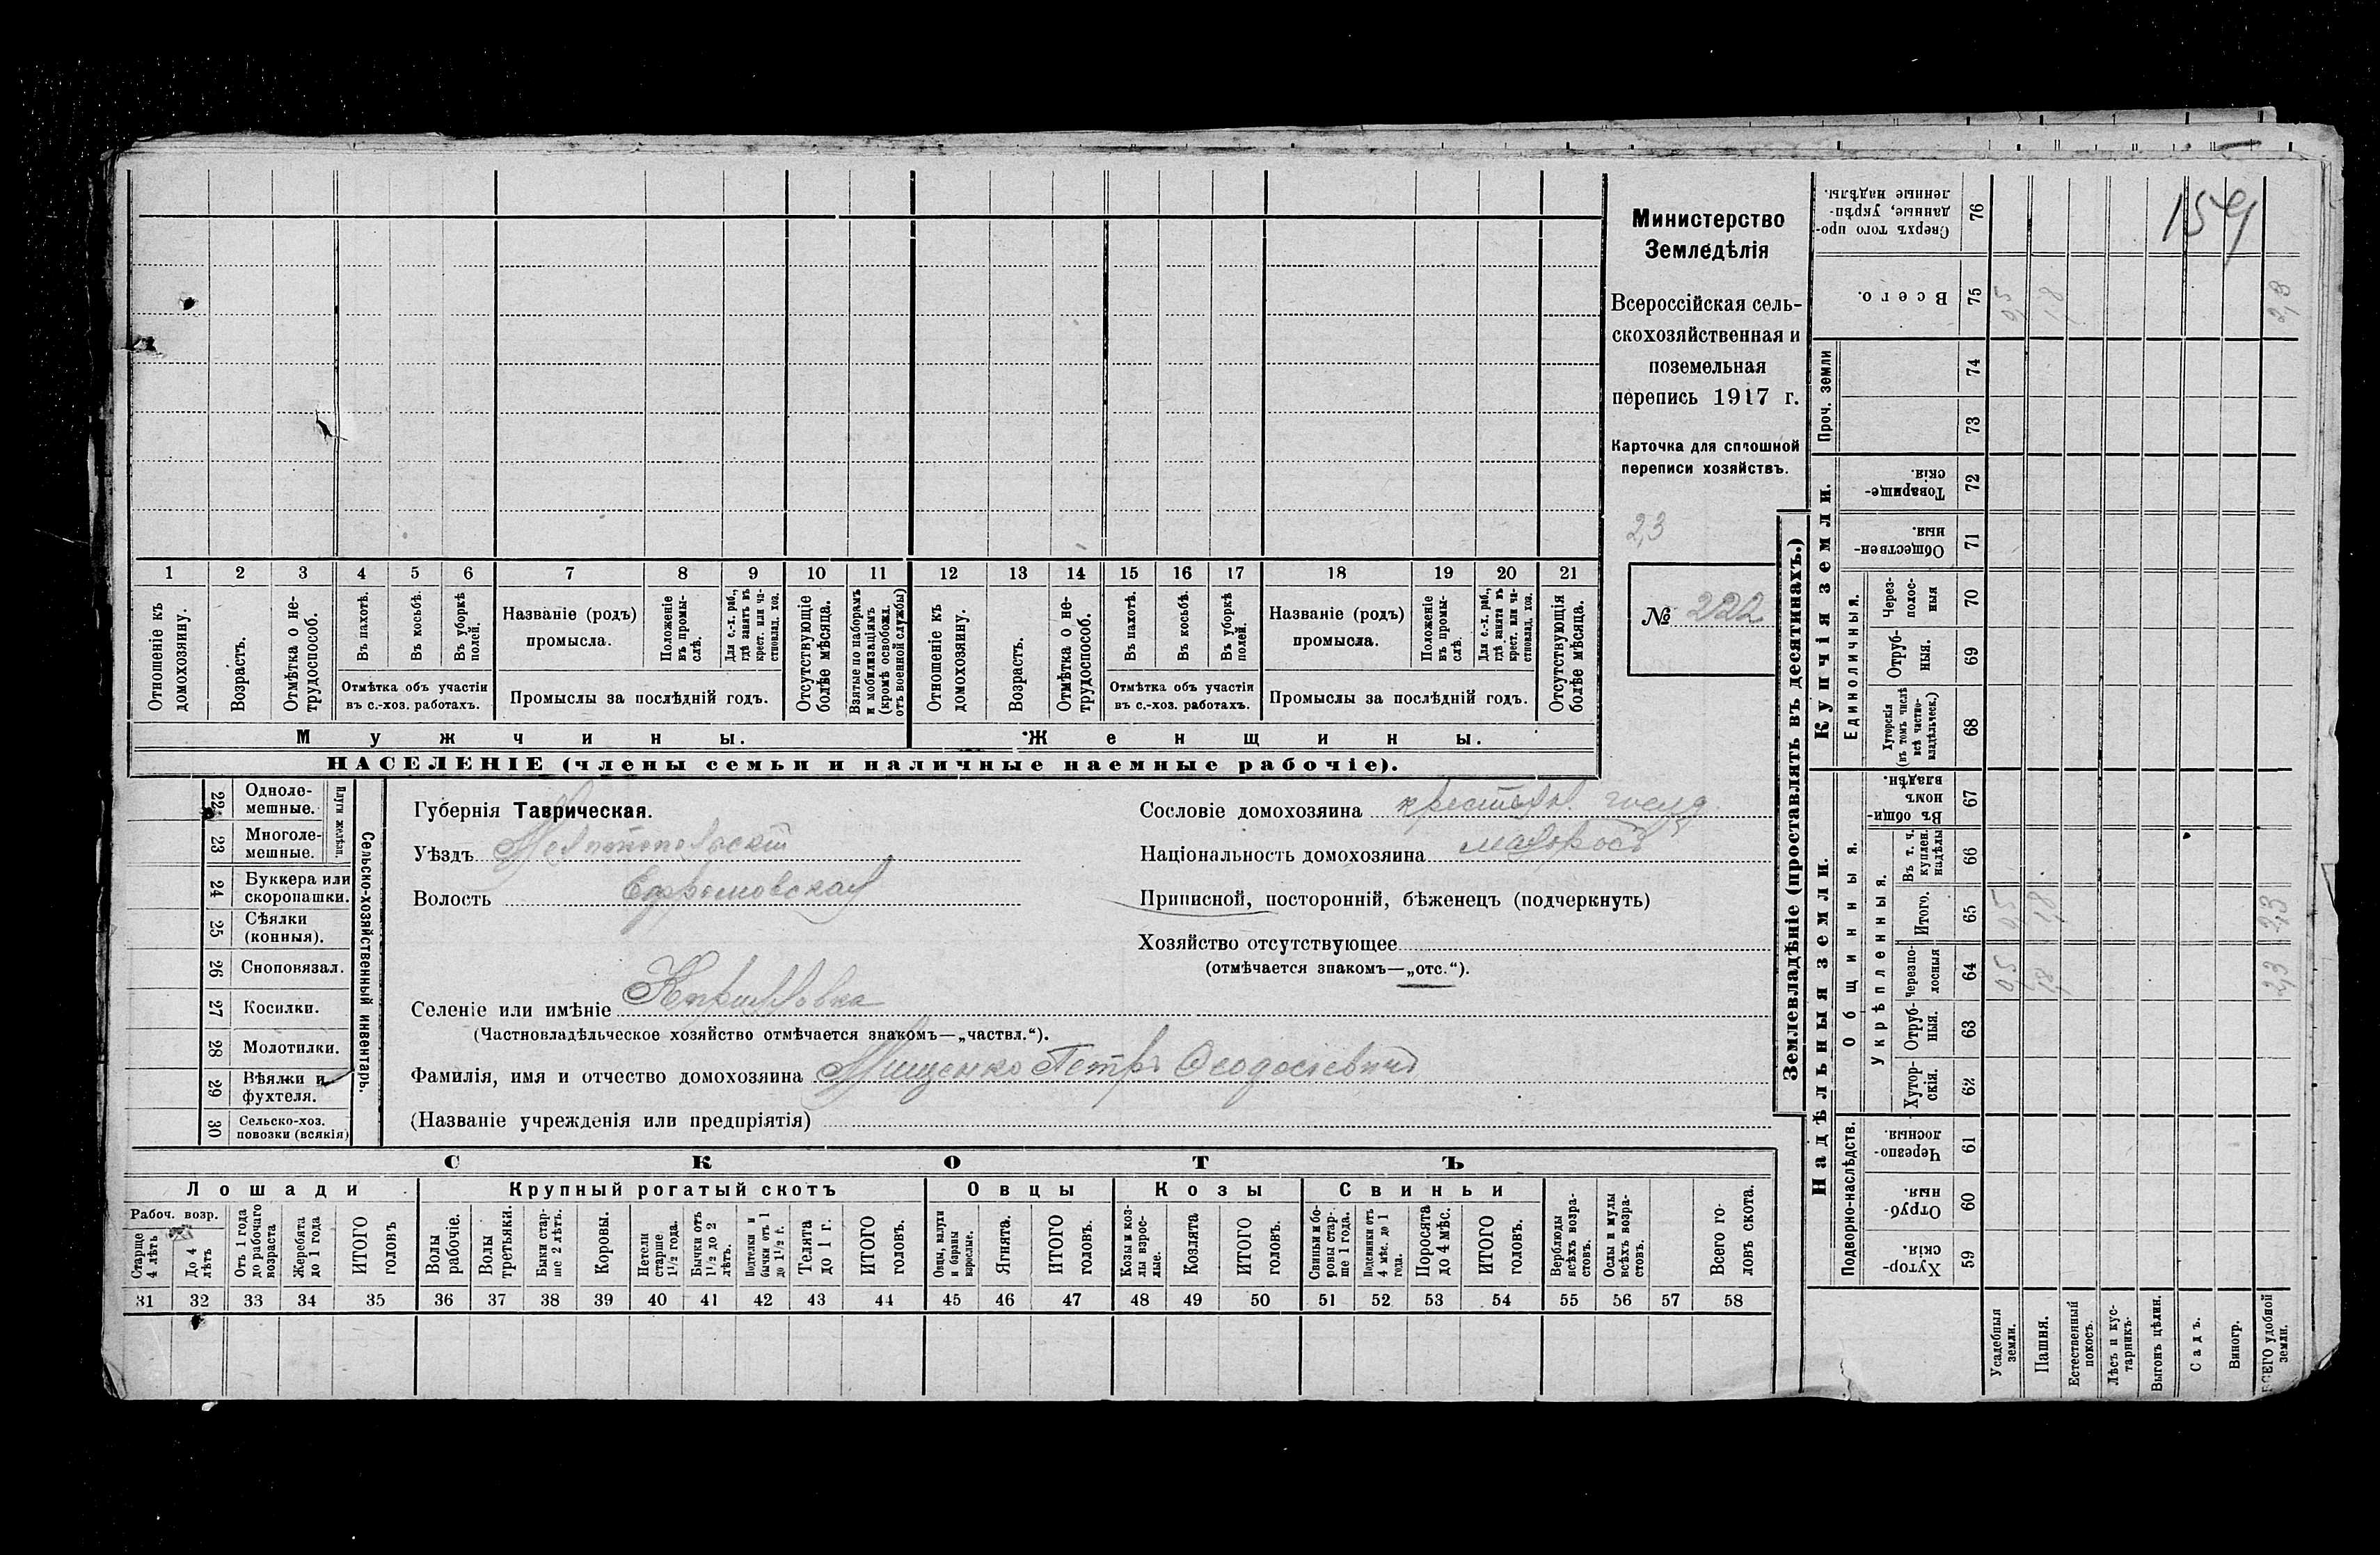 159
Министерство
Земледѣлія
Всероссійская сель-
скохозяйственная и
поземельная
перепись 1917 г.
Карточка для сплошной
переписи хозяйствъ.
2,3
№ 222
1 2 3 4 5 6 7 8 9 10 11 12 13 14 15 16 17 18 19 20 21
Отношеніе къ домохозяину.
Возрастъ.
Отмѣтка о не-трудоспособ.
Въ пахотѣ.
Въ косьбѣ.
Въ уборкѣ полей.
Отмѣтка объ участіи
въ с.-хоз. работахъ.
Названіе (родъ)
промысла.
Положеніе въ промы-слѣ.
Для с.-х. раб., гдѣ занятъ въ крест. или ча-стновлад. хоз.
Промыслы за послѣдній годъ.
Отсутствующіе болѣе мѣсяца.
Взятые по наборамъ и мобилизаціямъ (кромѣ освобожд. отъ военной службы)
Отношеніе къ домохозяину.
Возрастъ.
Отмѣтка о не-трудоспособ.
Въ пахотѣ.
Въ косьбѣ.
Въ уборкѣ полей.
Отмѣтка объ участіи
въ с.-хоз. работахъ.
Названіе (родъ)
промысла.
Положеніе въ промы-слѣ.
Для с.-х. раб., гдѣ занята въ крест. или ча-стновлад. хоз.
Промыслы за послѣдній годъ.
Отсутствующія болѣе мѣсяца.
Мужчины.
Женщины.
НАСЕЛЕНІЕ (члены семьи и наличные наемные рабочіе).
22 Одноле-мешные.
23 Многоле-мешные.
Плуги желѣзн.
24 Буккера или скоропашки.
25 Сѣялки (конныя).
26 Сноповязал.
27 Косилки.
28 Молотилки.
29 Вѣялки и фухтеля.
30 Сельско-хоз. повозки (всякія)
Сельско-хозяйственный инвентарь.
Губернія Таврическая.
Уѣздъ Мелитопольскій
Волость Ефремовская
Селеніе или имѣніе Кирилловка
(Частновладѣльческое хозяйство отмѣчается знакомъ—„частвл.“).
Фамилія, имя и отчество домохозяина Мищенко Петръ Ѳеодосіевичъ
(Названіе учрежденія или предпріятія)
Сословіе домохозяина крестьян. госуд.
Національность домохозяина малороссъ
Приписной, посторонній, бѣженецъ (подчеркнуть)
Хозяйство отсутствующее
(отмѣчается знакомъ—„отс.“).
СКОТЪ
Лошади
Крупный рогатый скотъ
Овцы
Козы
Свиньи
Рабоч. возр.
Старше 4 лѣтъ
До 4 лѣтъ
Отъ 1 года до рабочаго возраста
Жеребята до 1 года
ИТОГО головъ
Волы рабочіе.
Волы третьяки.
Быки стар-ше 2 лѣтъ.
Коровы.
Нетели старше 1½ года.
Бычки отъ 1½ до 2 лѣтъ.
Подтелки и бычки отъ 1 до 1½ г.
Телята до 1 г.
ИТОГО головъ.
Овцы, валухи и бараны взрослые.
Ягнята.
ИТОГО головъ.
Козы и коз-лы взрос-лые.
Козлята
ИТОГО головъ.
Свиньи и бо-ровы стар-ше 1 года.
Подсвинки отъ 4 мѣс. до 1 года.
Поросята до 4 мѣс.
ИТОГО головъ.
Верблюды всѣхъ возра-стовъ.
Ослы и мулы всѣхъ возра-стовъ.
Всего го-ловъ скота.
31 32 33 34 35 36 37 38 39 40 41 42 43 44 45 46 47 48 49 50 51 52 53 54 55 56 57 58
Землевладѣніе (проставлять въ десятинахъ.)
Надѣльныя земли.
Купчія земли.
Проч. земли
Подворно-наслѣдств.
Общинныя.
Укрѣпленныя.
Единоличныя.
Хутор-скія. 59
Отруб-ныя. 60
Черезпо-лосныя. 61
Хутор-скія. 62
Отруб-ныя. 63
Черезпо-лосныя 64 0,5 1,8 2,3
Итого. 65 0,5 1,8 2,3
Въ т. ч. куплен. надѣлы 66
Въ общи-номъ владѣн. 67
Хуторскія (въ томъ числѣ всѣ частно-владѣльческ.) 68
Отруб-ныя. 69
Через-полос-ныя 70
Обществен-ныя 71
Товарище-скія. 72
73
74
Всего. 75 0,5 1,8 2,3
Сверхъ того про-данные, укрѣп-ленные надѣлы. 76
Усадебныя земли.
Пашня.
Естественный покосъ.
Лѣсъ и кус-тарникъ.
Выгонъ цѣлин.
Садъ.
Виногр.
ВСЕГО удобной земли.